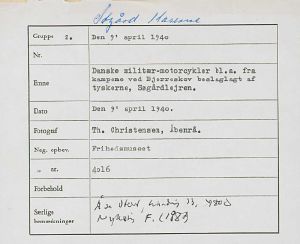 Søgård Kaserne
Gruppe 2. Den 9' april 1940
Nr.
Emne Danske militær-motorcykler bl.a. fra
kampene ved Bjerreskov beslaglagt af
tyskerne, Søgårdlejren.
Dato Den 9' april 1940.
Fotograf Th. Christensen, Åbenrå.
Neg. opbev. Frihedsmuseet
„ nr. 4016
Forbehold
Særlige
bemærkninger F. (1983)